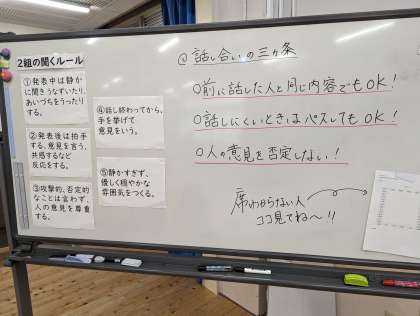 2組の聞くルール
①発表中は静か
に聞きうなずいたり、
あいづちをうったり
する。
②発表後は拍手
する、意見を言う、
共感するなど
反応をする。
③攻撃的、否定的
なことは言わず、
人の意見を尊重
する。
④話し終わってから、
手を挙げて
意見をいう。
⑤静かすぎず、
優しく穏やかな
雰囲気をつくる。
◎話し合いの三ヵ条
○前に話した人と同じ内容でもOK!
○話しにくいときはパスしてもOK!
○人の意見を否定しない!
席わからない人
ココ見てね〜!!